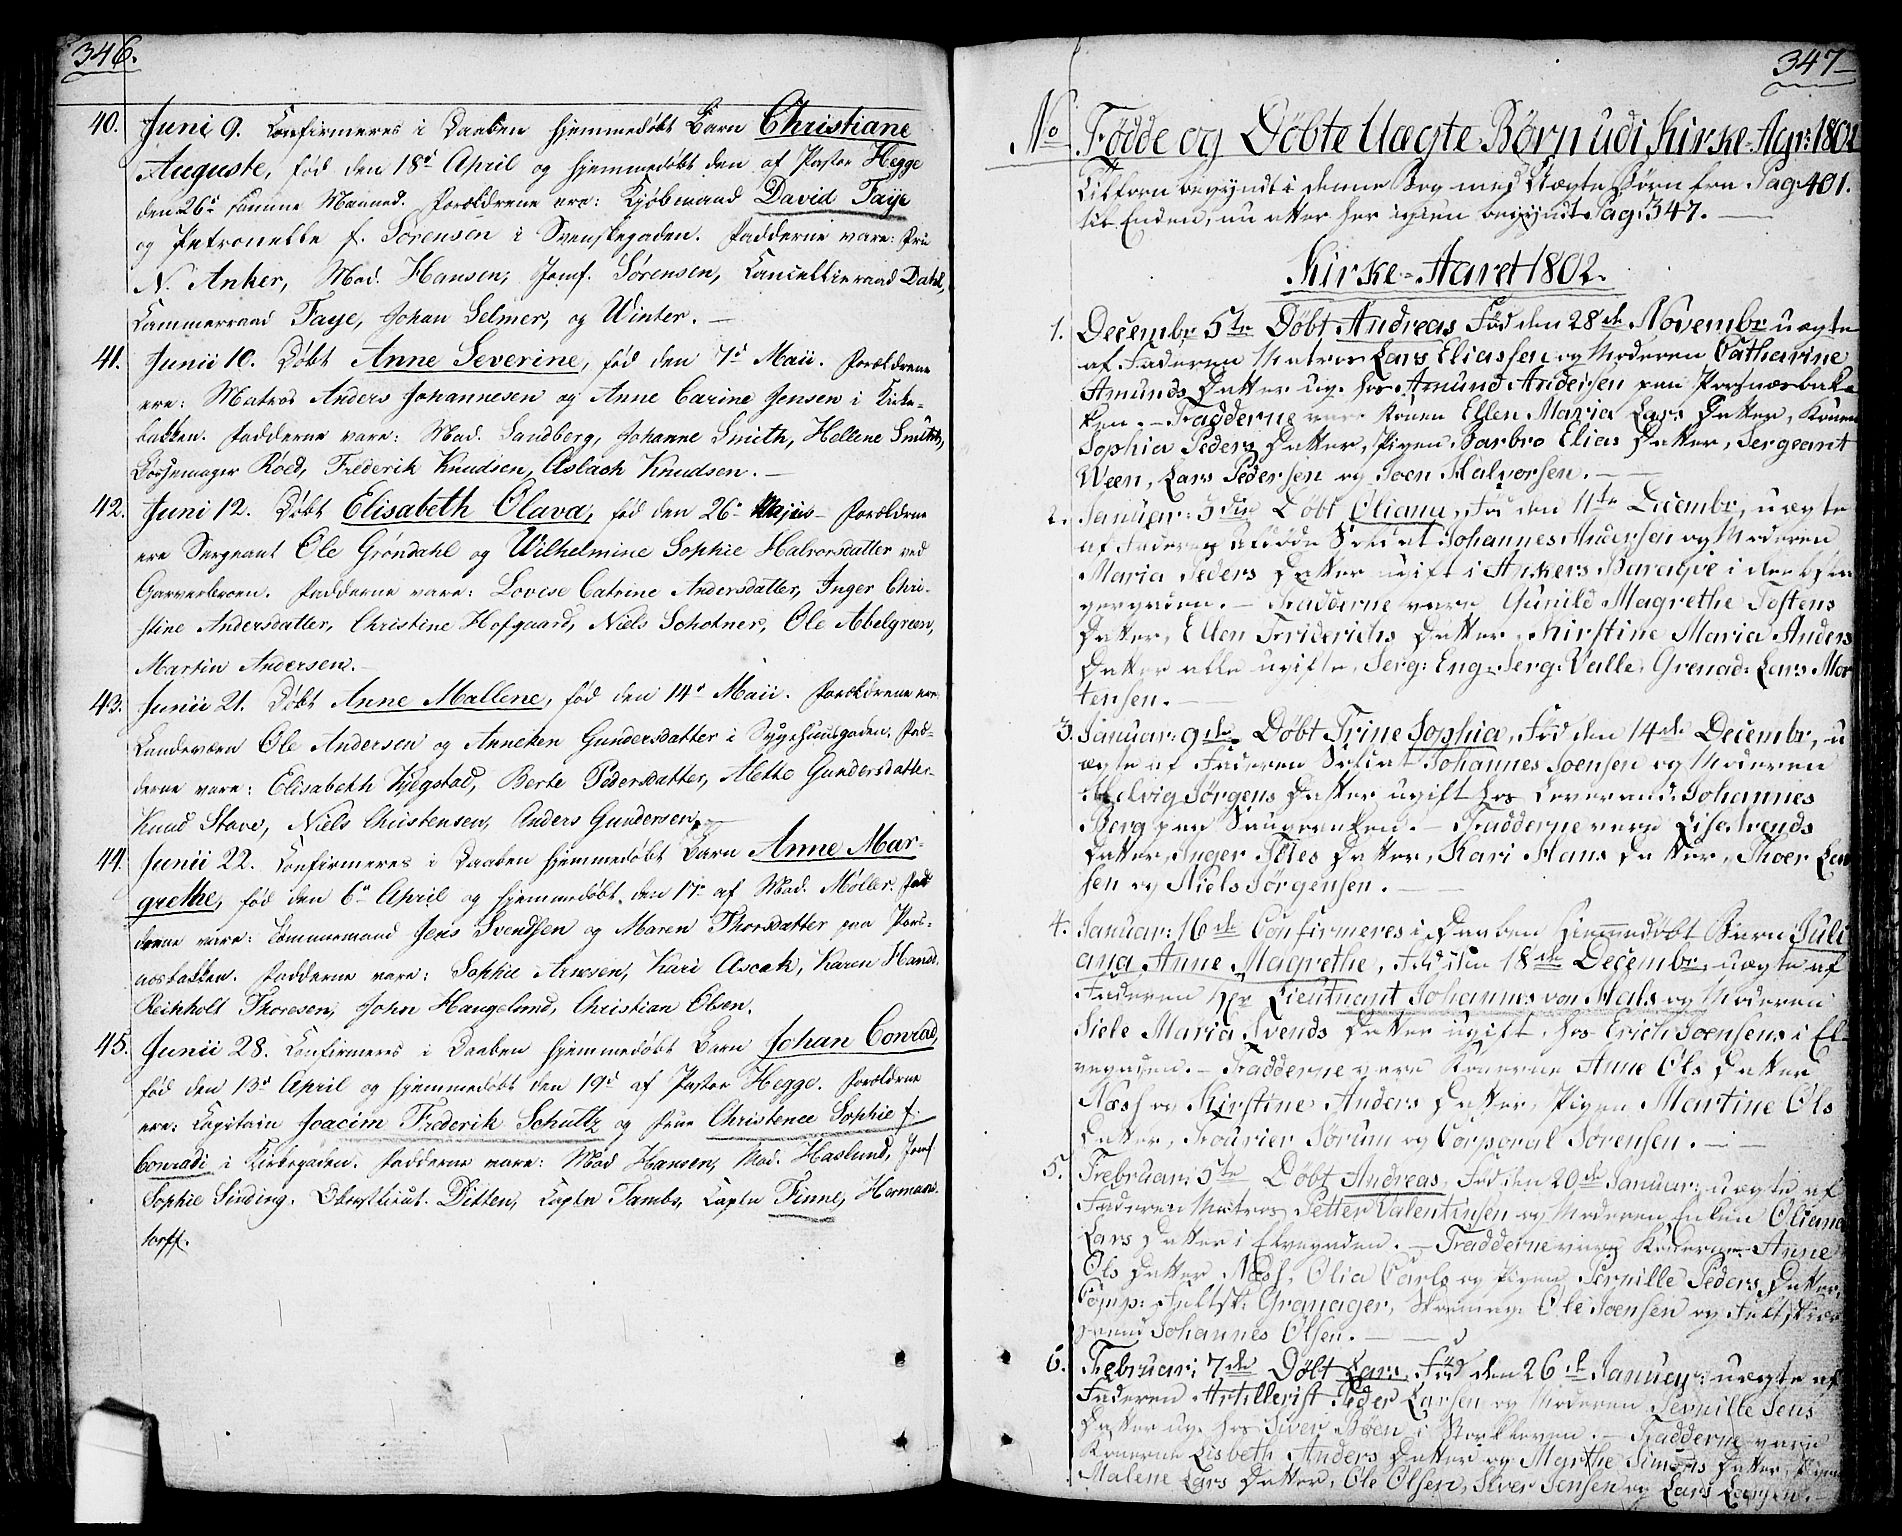 346.
40. Juni 9. Confirmeres i Daaben hjemmedøbt Barn Christiane
Auguste, fød den 18d April og hjemmedøbt den af Pastor Hegge
den 26d samme Maaned. Forældrene ere: Kjøbmand David Faye
og Petronelle f. Sørensen i Svenskegaden. Fadderne vare: Fru
N. Anker, Mad. Hansen, Jomf. Sørensen, Cancellieraad Dahl,
Cammerraad Faye, Johan Selmer, og Winter.
41. Junii 10. Døbt Anne Severine, fød den 7d Maii. Forældrene
ere: Matros Anders Johannesen og Anne Carine Jensen i Kirke-
bakken. Fadderne vare: Mad. Sandberg, Johanne Smith, Hellene Smith,
Bøssemager Roed, Frederik Knudsen, Aslach Knudsen.
42. Juni 12. Døbt Elisabeth Olava, fød den 26d Majus Forældrene
ere Sergeant Ole Grøndahl og Wilhelmine Sophie Halvorsdatter ved
Garverbroen. Fadderne vare: Lovise Catrine Andersdatter, Inger Chri-
stine Andersdatter, Christine Hofgaard, Niels Schotner, Ole Abelgreen,
Martin Andersen.
43. Junii 21. Døbt Anne Mallene, fød den 14d Maii. Forældrene ere
Landeværn Ole Andersen og Anneken Gundersdatter i Sygehuusgaden. Fad-
derne vare: Elisabeth Kjegstad, Berte Pedersdatter, Alethe Gundersdatter
Knud Stave, Niels Christensen, Anders Gundersen.
44. Junii 22. Confirmeres i Daaben hjemmedøbt Barn Anne Mar-
grethe, fød den 6d April og hjemmedøbt den 17d af Mad. Møller. Fad
derne vare: Tømmermand Jens Svendsen og Maren Thorsdatter paa Pors-
næsbakken. Fadderne vare: Sophie Arnesen, Kari Ascak, Karen Hansd.
Reinholt Thoresen, John Haugelund, Christian Olsen.
45. Junii 28. Confirmeres i Daaben hjemmedøbt Barn Johan Conrad,
fød den 13d April og hjemmedøbt den 19d af Pastor Hegge. Forældrene
ere: Capitain Joacim Frederik Schultz og Frue Christence Sophie f.
Conradi i Kirkegaden. Fadderne vare: Mad Hansen, Mad. Haslund, Jomf
Sophie Sinding. Oberstlieut. Ditten, Captn Tambs, Captn Finne, Hermans-
torff.
347
No Fødde og Døbte Uægte Børn udi Kirke-Agr: 1802
Tilforn begyndt i denne Bog med Uægte Børn fra Pag: 401.
til Enden, nu atter her igien begyndt Pag: 347.
Kirke-Aaret 1802.
1. Decembr 5te Døbt Andreas Fød den 28de Novembr uægte
af Faderen Matros Lars Eliassen og Moderen Catharine
Amunds Datter ug. hos Amund Andersen paa Porsnæsbak-
ken. - Fadderne vare Konen Ellen Maria Lars Datter, Konen
Sophia Peders Datter, Pigen Barbro Elias Datter, Sergeant
Ween, Lars Pedersen og Joen Halvorsen.
2. Januar: 3die Døbt Oliana, Fød den 11te Decembr, uægte
af Faderen afdøde Soldat Johannes Andersen og Moderen
Maria Peders Datter ugift i Ankers Baraque i
gergaden. - Fadderne vare Gunild Magrethe Tostens
Datter, Ellen Friderichs Datter, Kirstine Maria Anders
Datter alle ugifte, Serg: Eng, Serg: Valle, Grenad: Lars Mor
tensen.
3. Januar: 9de Døbt Trine Sophia, Fød den 14de Decembr, u
ægte af Faderen Soldat Johannes Joensen og Moderen
Hedvig Jørgens Datter ugift hos Leverand: Johannes
Berg paa Saugeenken. - Fadderne vare Lise Arends
Datter, Inger Oles Datter, Kari Hans Datter, Thoer Lar
sen og Niels Jørgensen.
4. Januar: 16de Confirmeres i Daaben hiemmedøbt Barn Juli
ana Anne Magrethe, Fød den 18de Decembr, uægte af
Faderen Hr Lieutnant Johannes von Hals og Moderen
Siele Maria Svends Datter ugift hos Erich Joensens i El-
vegaden. - Fadderne vare Konerne Anne Ols Datter
Næss og Kirstine Anders Datter, Pigen Martine Ols
Datter, Fourier Sørum og Corporal Sørensen.
5. Februar: 5te Døbt Andreas, Fød den 20de Januar: uægte af
Faderen Matros Petter Valentinsen og Moderen Enken Oliana
Lars Datter i Elvegaden. - Fadderne vare Konerne Anne
Ols Datter Næss, Olia Carls og Pigen Pernille Peders Datter,
Comp: Feltsk: Granager, Skomag: Ole Joensen og Feltskier
svend Johannes Olsen.
6. Februar: 7de Døbt Lars, Fød den 26de Januar: uægte af
Faderen Artillerist Peder Larsen og Moderen Pernille Jens
Datter ug. hos Siver Boen i Storkleven. - Fadderne vare
Konerne Lisbeth Anders Datter og Marthe Simons Datter, Pigen
Malene Lars Datter, Ole Olsen, Siver Jensen og Lars Larsen.